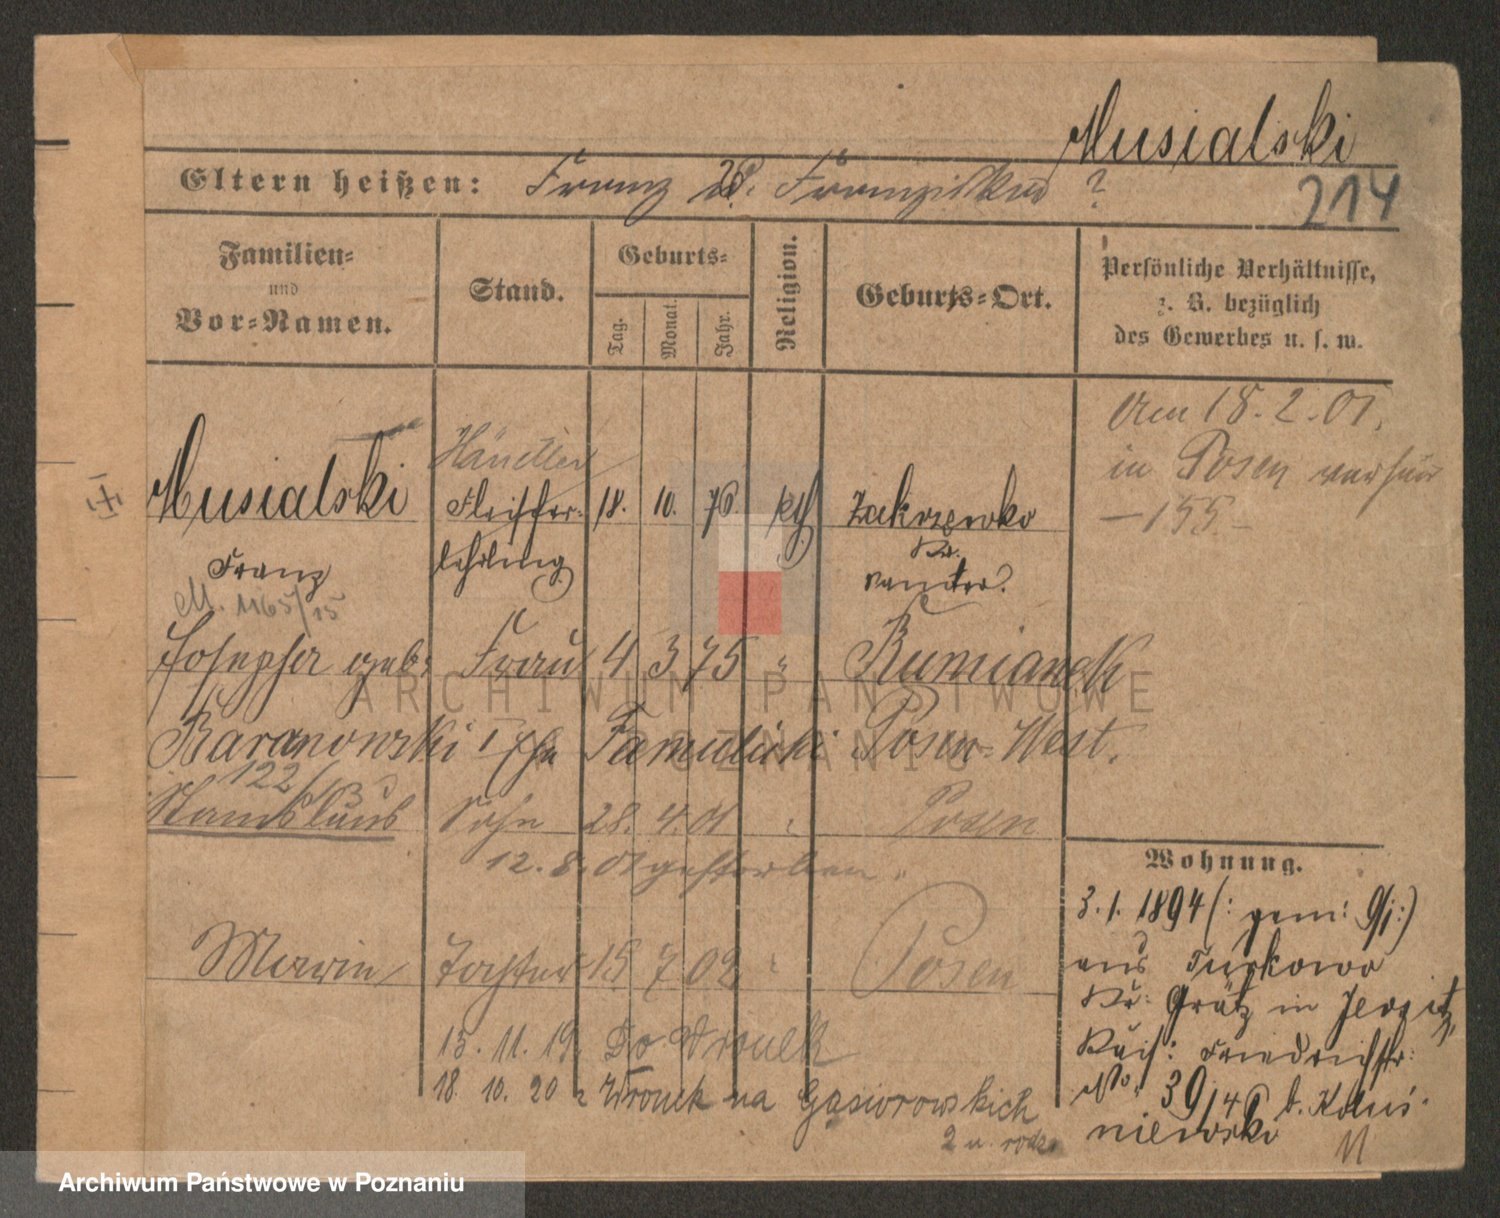 Musialski
Eltern heißen: Franz u. Franziska ?
214
Familien=
und
Vor=Namen.
Stand.
Geburts=
Tag.
Monat.
Jahr.
Religion.
Geburts=Ort.
Persönliche Verhältnisse,
z. B. bezüglich
des Gewerbes u. s. w.
Am 18. 2. 01.
in Posen
— 155 —
Händler
Musialski Fleischer= 18. 10. 76 kth Zakrzewko
Franz lehrling Kr.
M. 1165/15
Josepha geb. Frau 4 3 75 " Rumianek
Baranowski Posen=West.
122/
Stanislaus Sohn 28. 4. 01 " Posen
12. 8. 01 gestorben.
Marie Tochter 15 7 02 " Posen
13. 11. 19. Do Wronek
18. 10. 20 z Wronek na Gąsiorowskich
2 u. rodz.
Wohnung.
3. 1. 1894 (: gem: 9/1:)
aus Turkowo
Kr: Grätz in Jersitz,
Kais: Friedrichstr:
No. 39/40 b.
niewski
11
ARCHIWUM PAŃSTWOWE
W POZNANIU
Archiwum Państwowe w Poznaniu